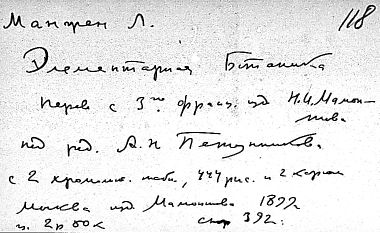 Манжен Л. 118
Элементарная Ботаника
перев с 3го франц. изд Н.И. Мамон-
това
под ред. А.Н Петунникова
с 2 хромол. табл., 447 рис. и 2 картам
Москва изд Мамонтова 1899
ц. 2 р 00 к стр 392.